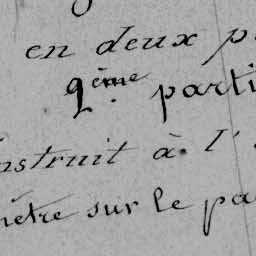 en deux p
2ème parti
nstruit à l'
nètre sur le pa